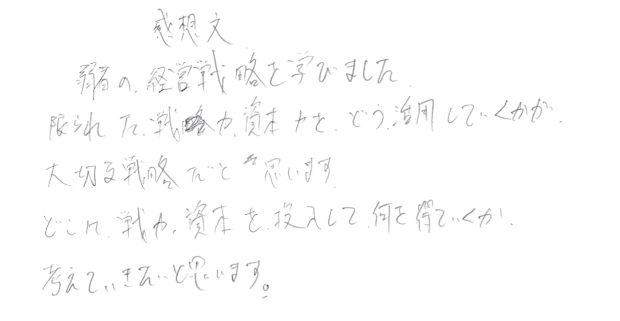 感想文
弱者の、経営戦略を学びました
限られた、戦力、資本力を、どう、活用していくかが、
大切な戦略だと思います
どこに、戦力、資本を、投入して、何を得ていくか、
考えていきたいと思います。